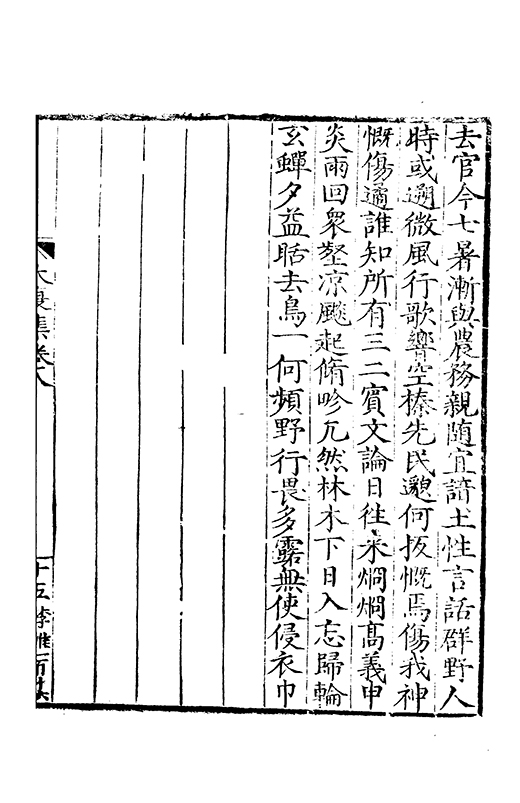 去官今七暑漸與農務親随宜諳土性言話群野人
時或遡微風行歌響空榛先民邈何扳慨焉傷我神
慨傷適誰知所有三二賓文論日往来烱烱高義申
炎雨回衆壑凉飈起脩畛兀然林木下日入忘歸輪
玄蟬夕益聒去鳥一何頻野行畏多露無使侵衣巾
大復集卷八
十五